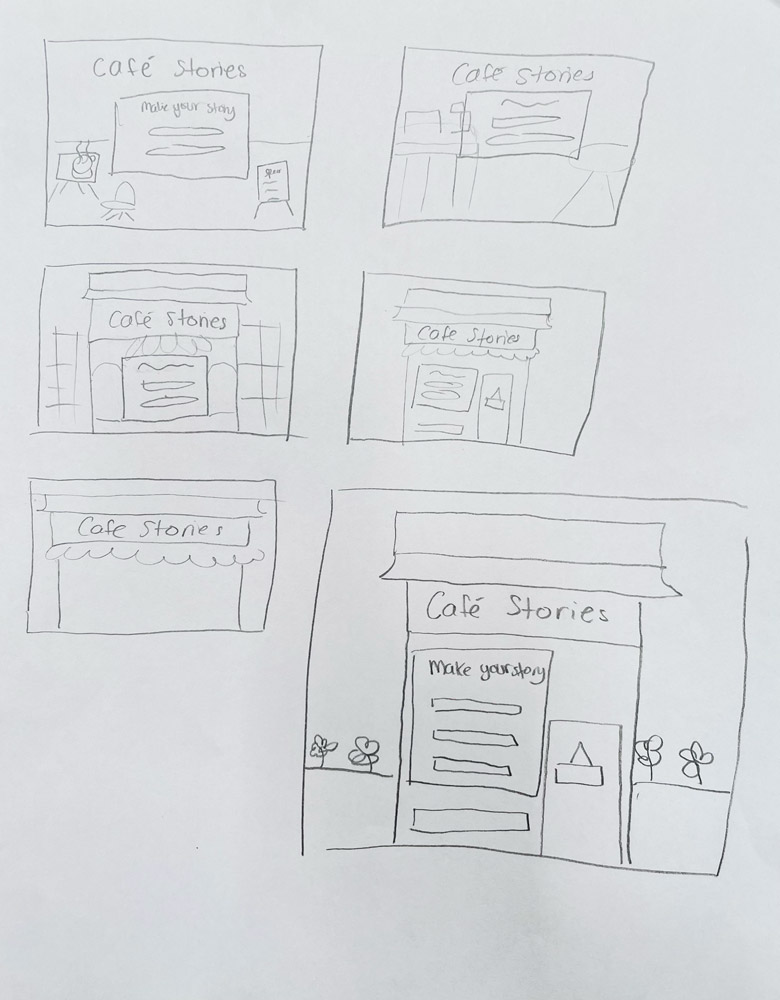 Café Stories
Make your story
Café Stories
Café Stories
Cafe Stories
Cafe Stories
Café Stories
Make your story